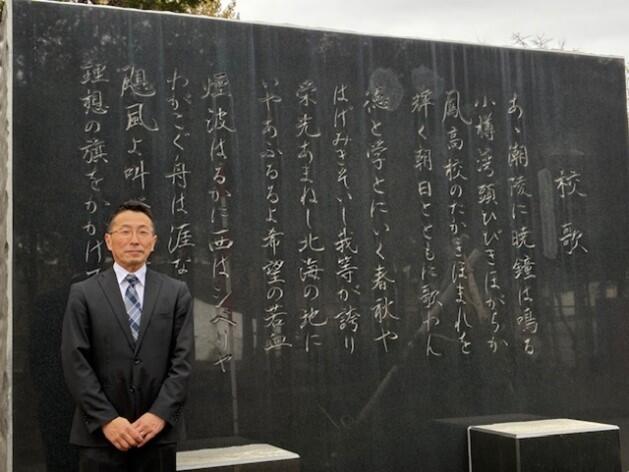 校歌
あゝ潮陵に暁鐘は鳴る
小樽湾頭ひびきほがらか
鳳高校のたかきほまれを
輝く朝日とともに歌わん
徳と学とにいく春秋や
はげみきそいし我等が誇り
栄光あまねし北海の地に
いやあふるるよ希望の若血
煙波はるかに西はシベリヤ
わがこぐ舟は涯な
颶風よ叫
理想の旗をかかげ